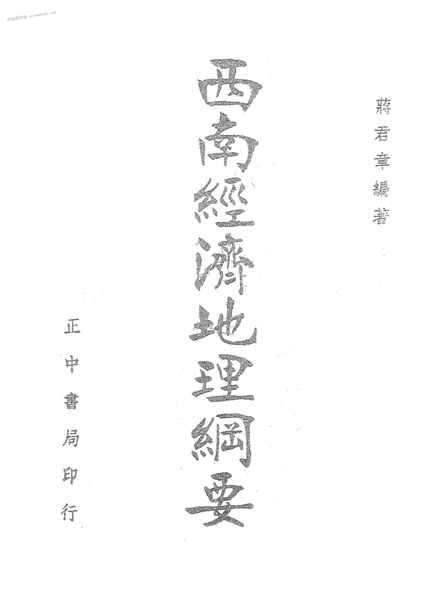 蔣君章編著
西南經濟地理綱要
正中書局印行